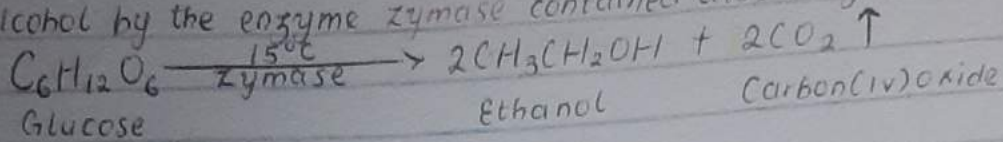 lcohol by the enzyme zymase contained
C₆H₁₂O₆ —15°C/zymase→ 2CH₃CH₂OH + 2CO₂ ↑
Glucose Ethanol Carbon(iv)oxide